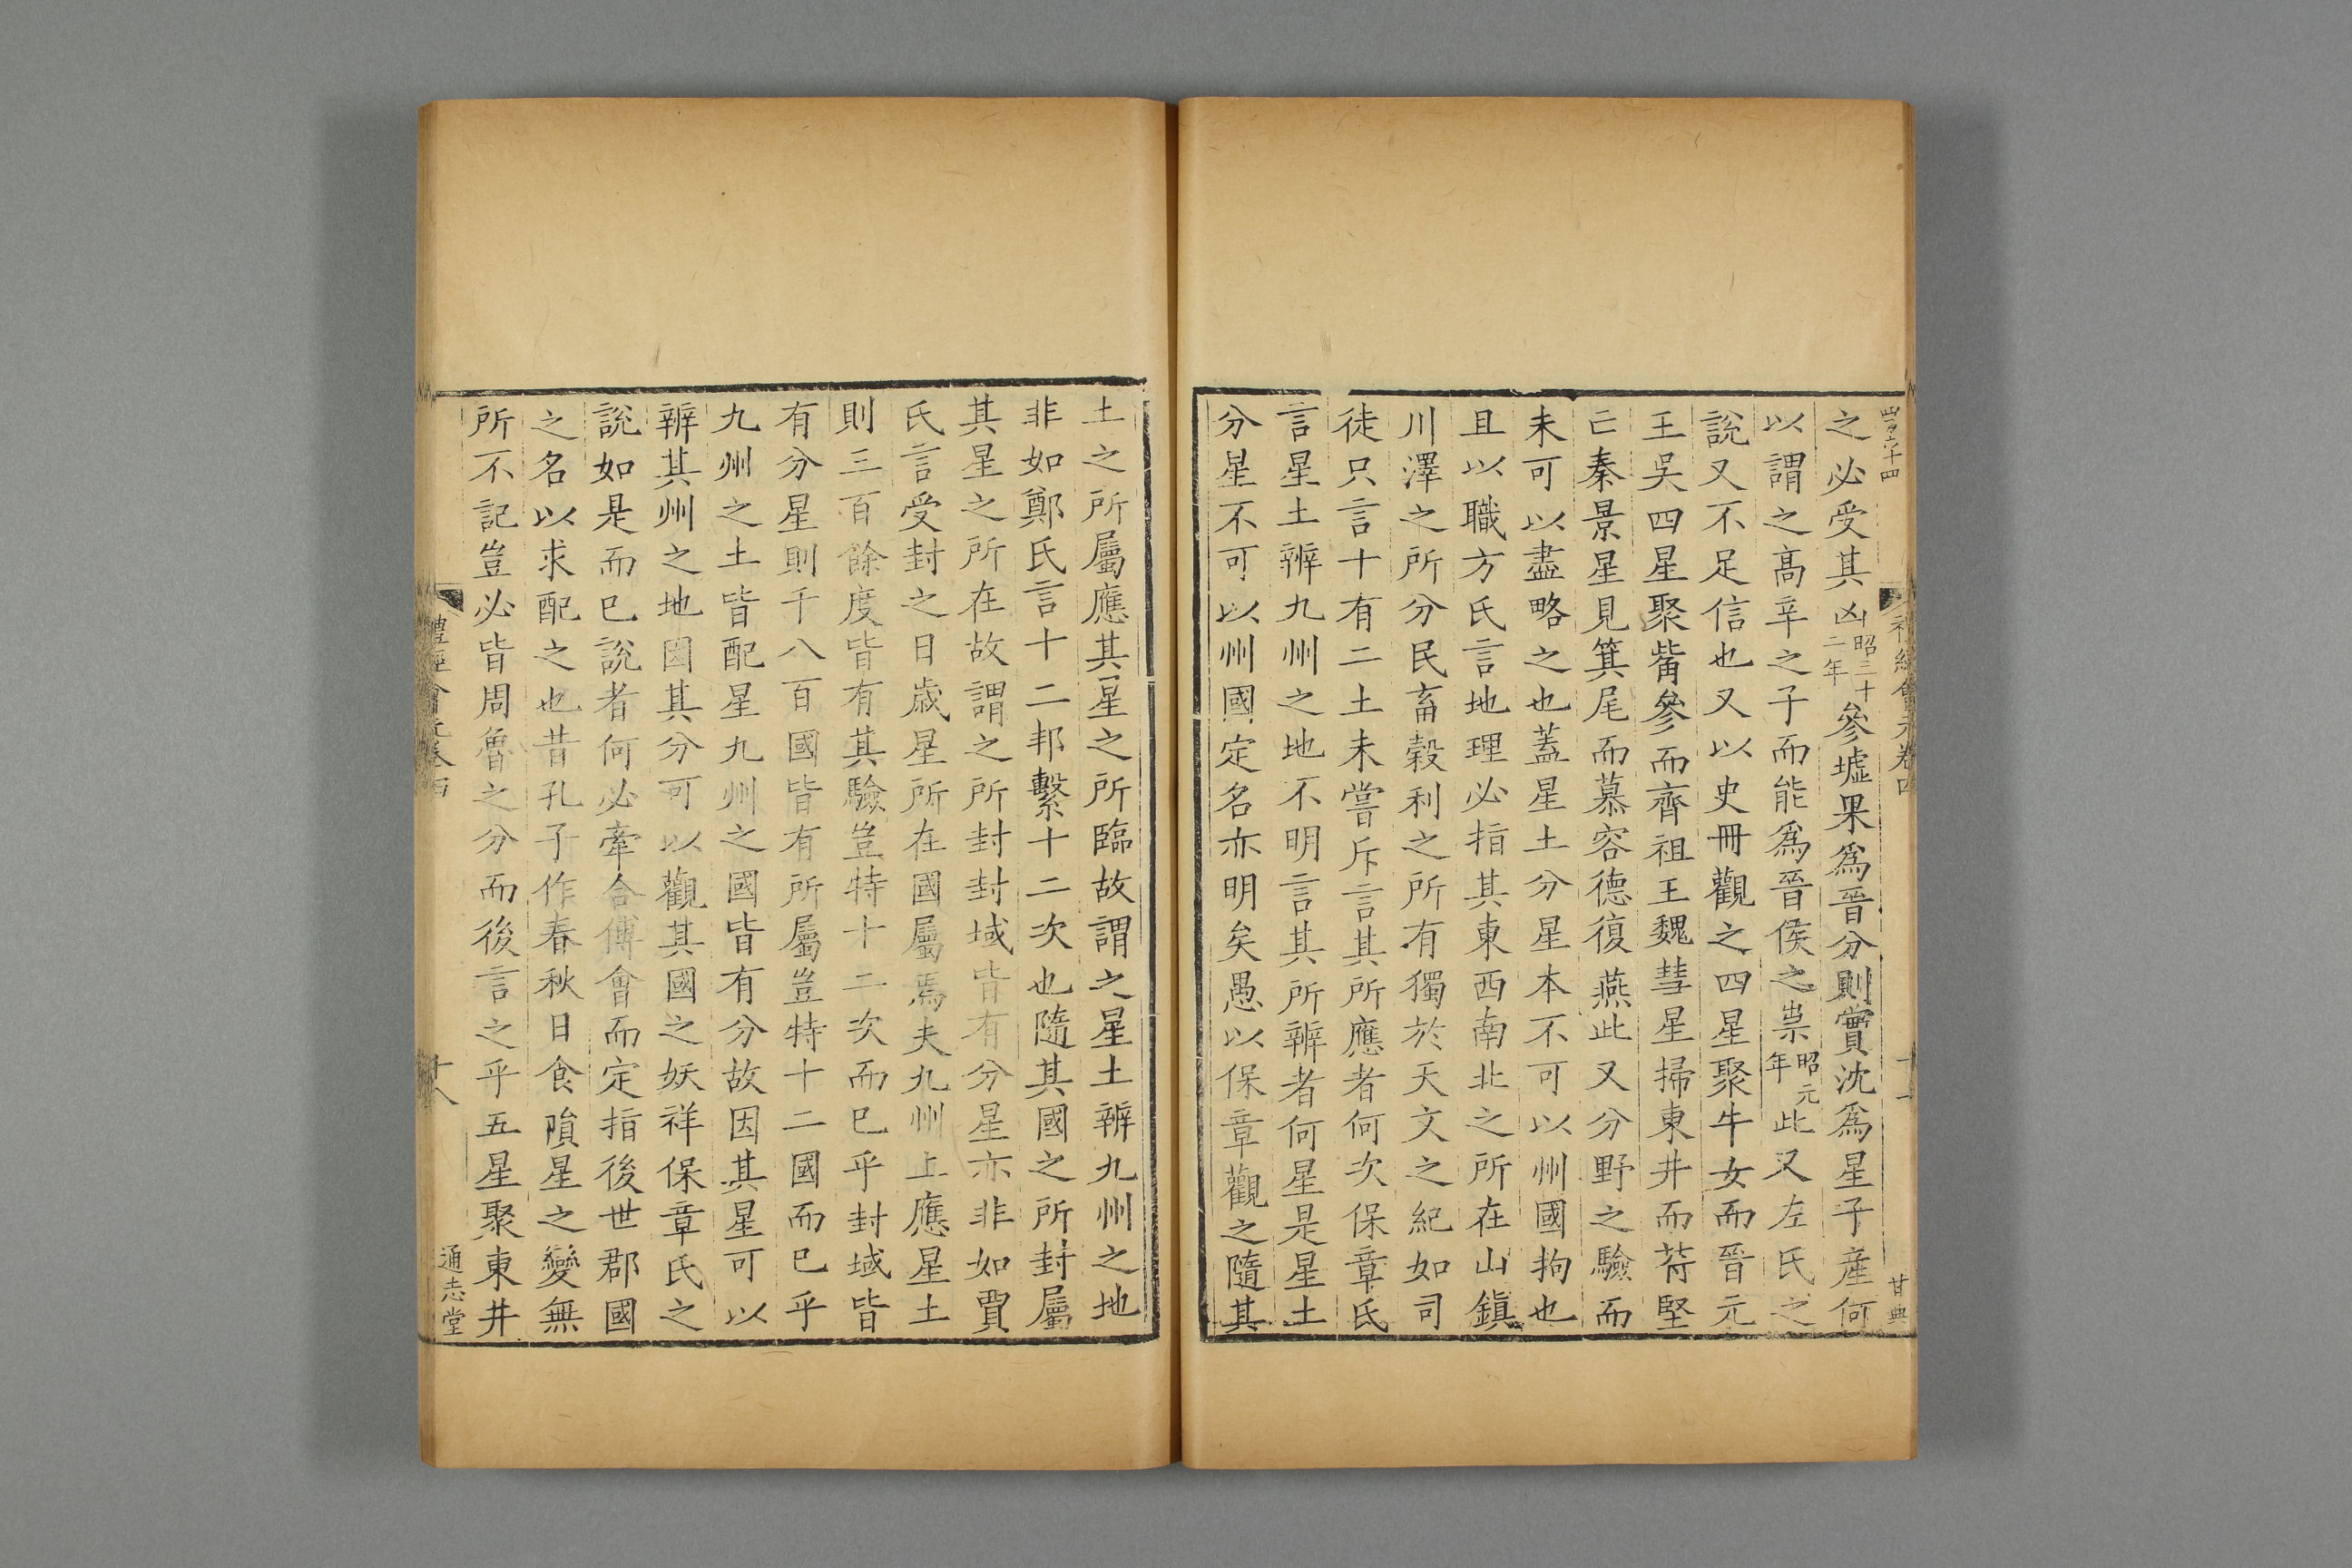 之必受其凶昭三十二年參墟果爲晉分則實沈爲星子産何
以謂之髙辛之子而能爲晉侯之祟昭元年此又左氏之
說又不足信也又以史冊觀之四星聚牛女而晉元
王吳四星聚觜參而齊祖王魏彗星掃東井而苻堅
亡秦景星見箕尾而慕容德復燕此又分野之驗而
未可以盡略之也蓋星土分星本不可以州國拘也
且以職方氏言地理必指其東西南北之所在山鎮
川澤之所分民畜穀利之所有獨於天文之紀如司
徒只言十有二土未嘗斥言其所應者何次保章氏
言星土辨九州之地不明言其所辨者何星是星土
分星不可以州國定名亦明矣愚以保章觀之隨其
土之所屬應其星之所臨故謂之星土辨九州之地
非如鄭氏言十二邦繫十二次也隨其國之所封屬
其星之所在故謂之所封封域皆有分星亦非如賈
氏言受封之日歲星所在國屬焉夫九州上應星土
則三百餘度皆有其驗豈特十二次而已乎封域皆
有分星則千八百國皆有所屬豈特十二國而已乎
九州之土皆配星九州之國皆有分故因其星可以
辨其州之地因其分可以觀其國之妖祥保章氏之
說如是而已說者何必牽合傅會而定指後世郡國
之名以求配之也昔孔子作春秋日食隕星之變無
所不記豈必皆周魯之分而後言之乎五星聚東井
禮經會元卷四
十八
通志堂